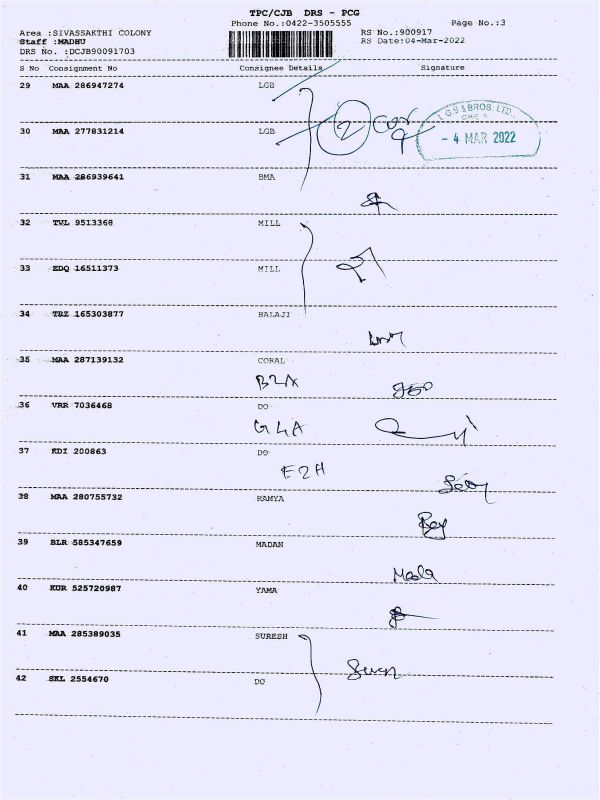 TPC/CJB DRS - PCG
Phone No.:0422-3505555
Page No.:3
Area :SIVASSAKTHI COLONY
RS No.:900917
Staff :MADHU
RS Date:04-Mar-2022
DRS No. :DCJB90091703
S No Consignment No Consignee Details Signature
29 MAA 286947274 LGB
30 MAA 277831214 LGB
2
BROS. LTD.
- 4 MAR 2022
31 MAA 286939641 BMA
32 TVL 9513368 MILL
33 EDQ 16511373 MILL
34 TRZ 165303877 BALAJI
35 MAA 287139132 CORAL
B2A
36 VRR 7036468 DO
G4A
37 KDI 200863 DO
E2H
38 MAA 280755732 RAMYA
39 BLR 585347659 MADAN
40 KUR 525720987 YAMA
41 MAA 285389035 SURESH
42 SKL 2554670 DO